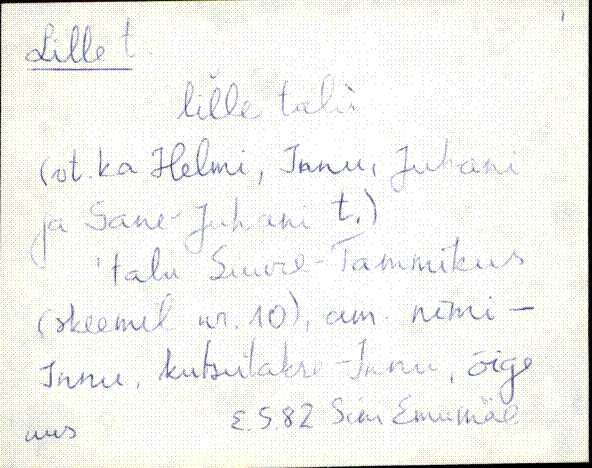 Lille t.
lille talù
(vt. ka Helmi, Innu, Juhani
ja Sane-Juhani t.)
'talu Suure-Tammikus
(skeemil nr. 10), am. nimi –
Innu, kutsutakse - Innu, õige
uus E. S. 82 Sim Emumäe